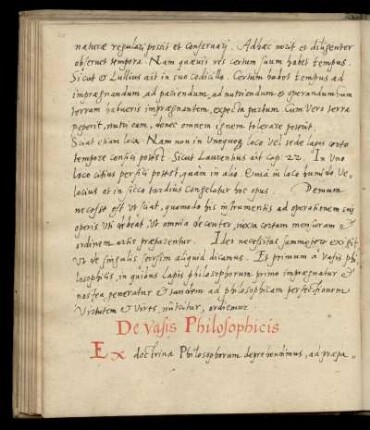 naturæ regulari possit et conservari. Adhæc norit et diligenter
observet tempora. Nam quævis res certum suum habet tempus.
Sicut & Lullius ait in suo codicillo. Certum habet tempus ad
imprægnandum, ad patiendum, ad nutriendum &
terram habueris imprægnantem, expecta partum. Cum vero terra
peperit, nutri eam, donec omnem ignem tolerare possit.
Sciat etiam loca. Nam non in unoquoq loco vel sede lapis certo
tempore confici potest. Sicut Laurentius ait cap. 22. In uno
loco citius perfici potest, quam in alio. Quia in loco humido ve-
locius et in sicco tardius congelatur hoc opus. Demum
necesse est ut sciat, quomodo his instrumentis ad operationem sui
operis uti debeat, ut omnia decenter, iuxta certam mensuram &
ordinem artis præparentur. Ideo necessitas exigit
ut de singulis seorsim aliquid dicamus. Et primum a vasis phi-
losophicis, in quibus lapis philosophorum primo imprægnatur &
postea generatur & tandem ad philosophicam perfectionem
virtutem & vires, nutritur, ordiemur.
De Vasis Philosophicis
Ex doctrina Philosophorum deprehendimus, ad præpa-